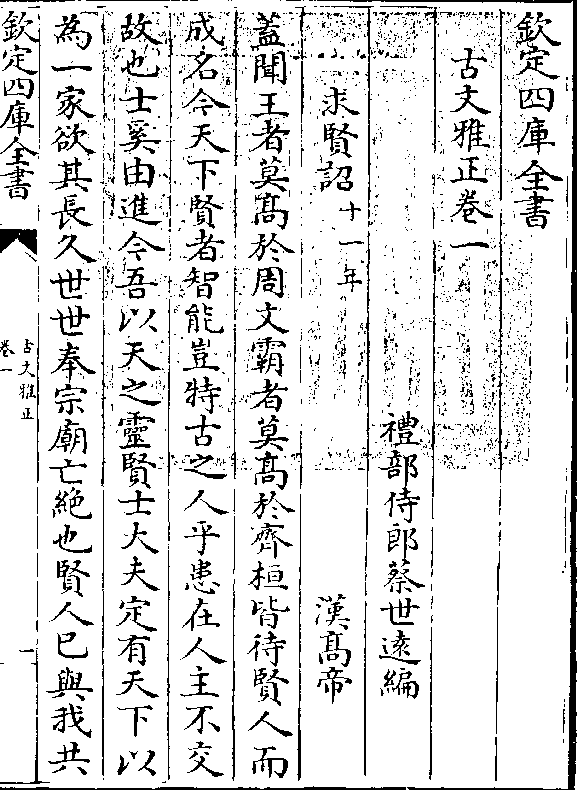 欽定四庫全書
古文雅正卷一
禮部侍郎蔡世遠編
求賢詔十一年 漢髙帝
蓋聞王者莫髙於周文霸者莫髙於齊桓皆待賢人而
成名今天下賢者智能豈特古之人乎患在人主不交
故也士奚由進今吾以天之靈賢士大夫定有天下以
為一家欲其長久世世奉宗廟亡絶也賢人已與我共
欽定四庫全書
古文雅正
卷一
一